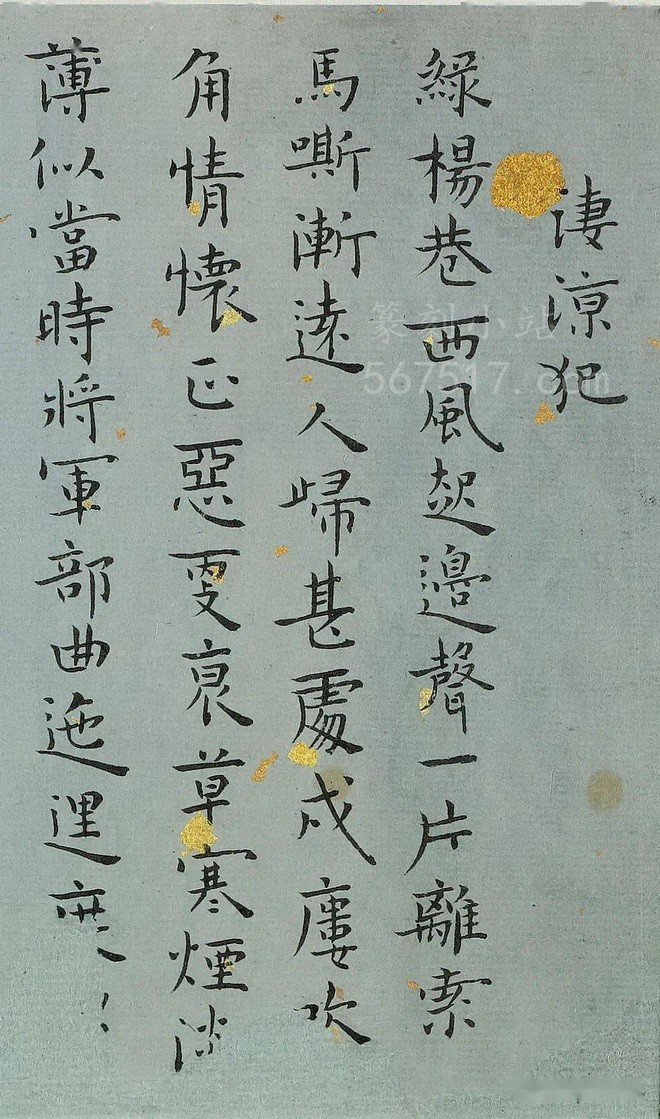 凄涼犯
綠楊巷西風起邊聲一片離索
馬嘶漸遠人歸甚處戍廔吹
角情懷正惡更衰草寒煙淡
薄似當時將軍部曲迤
篆刻小站
567517.com